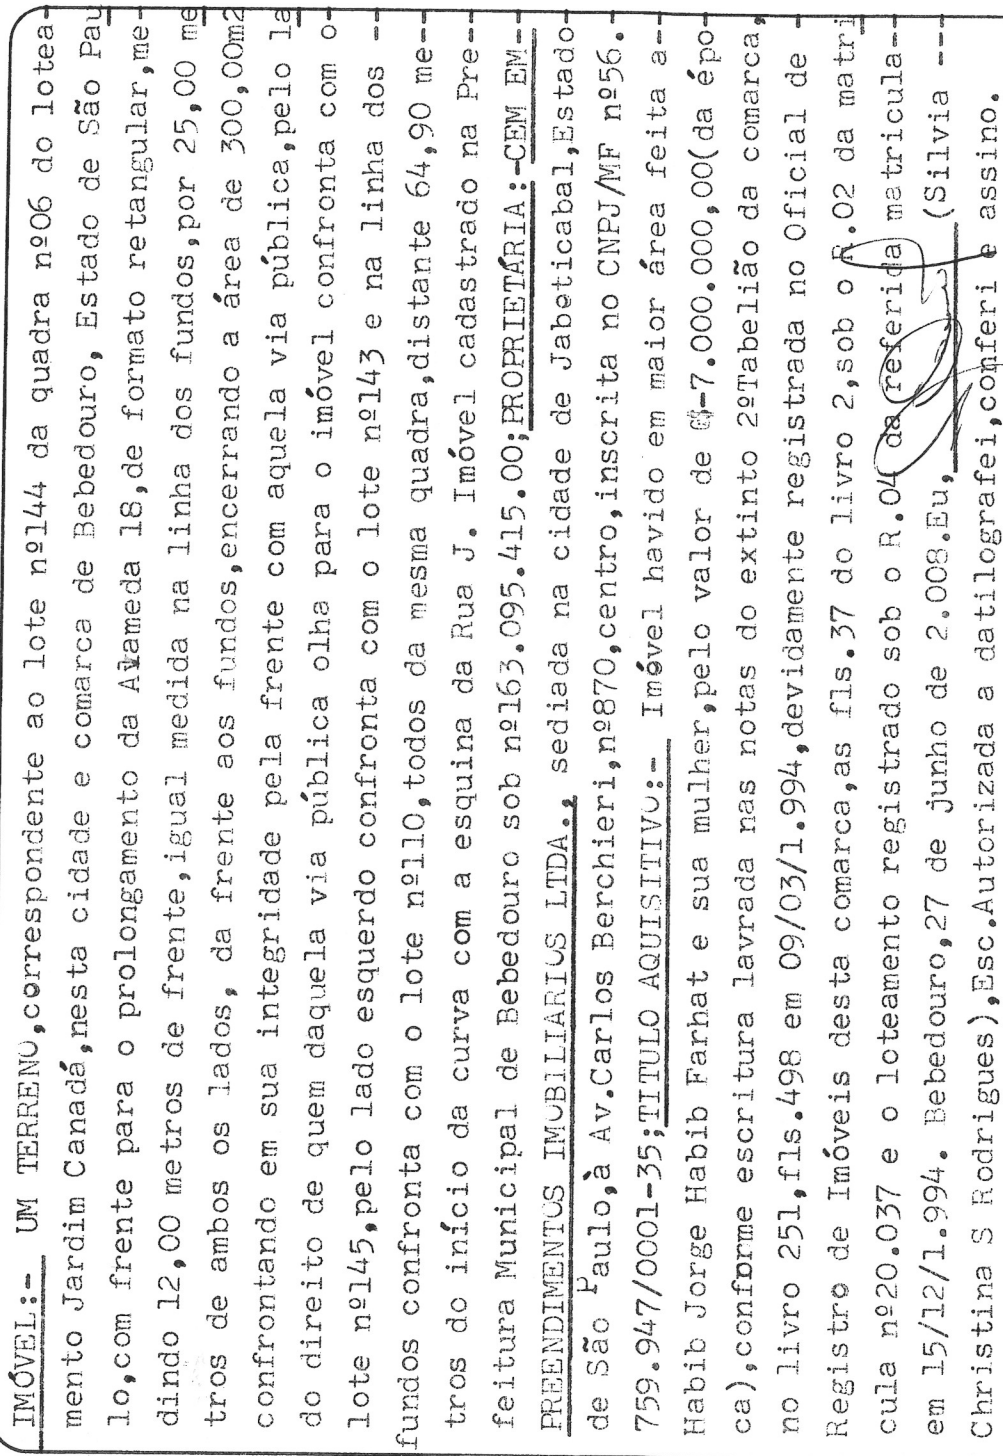 IMÓVEL:- UM TERRENO,correspondente ao lote nº144 da quadra nº06 do lotea-
mento Jardim Canadá,nesta cidade e comarca de Bebedouro, Estado de São Pau
lo,com frente para o prolongamento da Alameda 18,de formato retangular,me-
dindo 12,00 metros de frente,igual medida na linha dos fundos,por 25,00 me
tros de ambos os lados, da frente aos fundos,encerrando a área de 300,00m2
confrontando em sua integridade pela frente com aquela via pública,pelo la
do direito de quem daquela via pública olha para o imóvel confronta com o-
lote nº145,pelo lado esquerdo confronta com o lote nº143 e na linha dos -
fundos confronta com o lote nº110,todos da mesma quadra,distante 64,90 me-
tros do início da curva com a esquina da Rua J. Imóvel cadastrado na Pre-
feitura Municipal de Bebedouro sob nº163.095.415.00;PROPRIETÁRIA:-CEM EM-
PREENDIMENTOS IMOBILIÁRIOS LTDA., sediada na cidade de Jaboticabal,Estado
de São Paulo,à Av.Carlos Berchieri,nº870,centro,inscrita no CNPJ/MF nº56.
759.947/0001-35;TITULO AQUISITIVO:- Imóvel havido em maior área feita a-
Habib Jorge Habib Farhat e sua mulher,pelo valor de -7.000.000,00(da épo-
ca),conforme escritura lavrada nas notas do extinto 2ºTabelião da comarca,
no livro 251,fls.498 em 09/03/1.994,devidamente registrada no Oficial de
Registro de Imóveis desta comarca,as fls.37 do livro 2,sob o R.02 da matri
cula nº20.037 e o loteamento registrado sob o R.04 da referida matricula--
em 15/12/1.994. Bebedouro,27 de junho de 2.008.Eu, (Silvia --
Christina S Rodrigues),Esc.Autorizada a datilografei,conferi e assino.